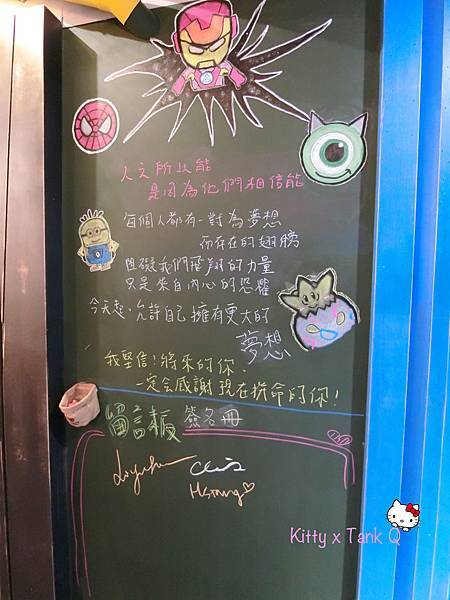 人之所以能
是因為他們相信能
每個人都有一對為夢想
而存在的翅膀
阻礙我們飛翔的力量
只是來自內心的恐懼
今天起,允許自己擁有更大的
夢想
我堅信!將來的你,
一定会感謝現在拚命的你!
留言板 簽名冊
Chris
Hsiung♡
Kitty x Tank Q